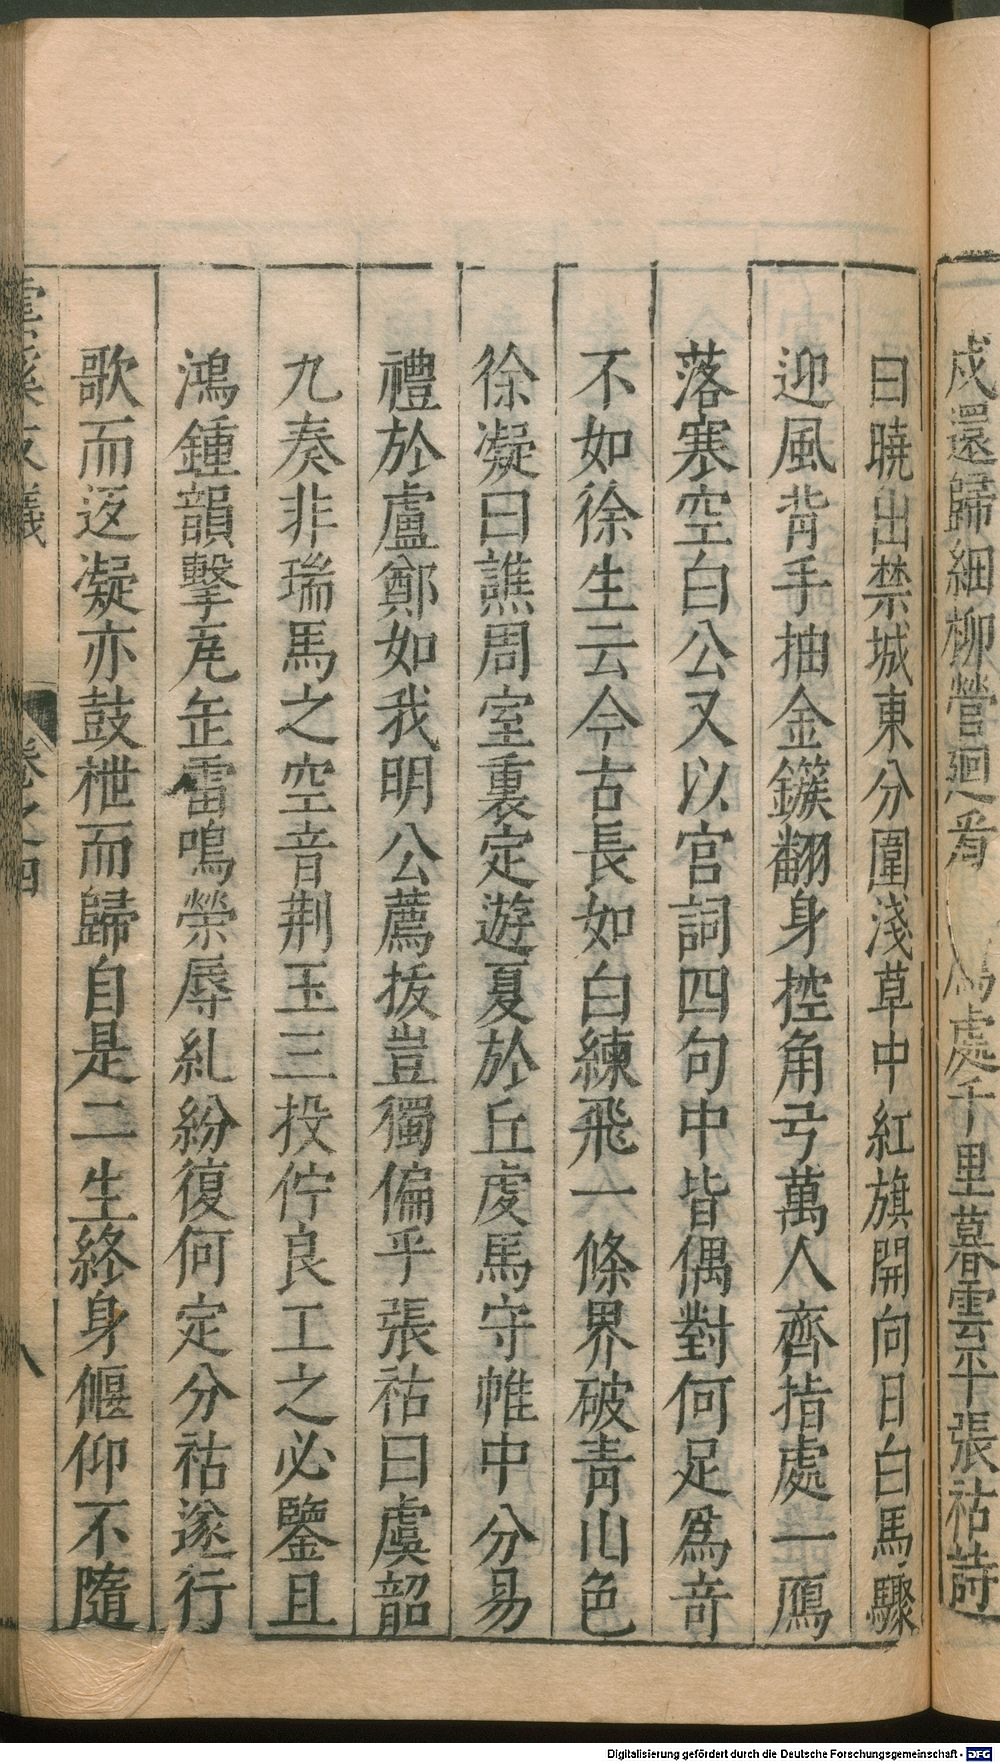 戍還歸細柳營廻看 處千里暮雲平張祜詩
曰曉出禁城東分圍淺草中紅旗開向日白馬驟
迎風背手抽金鏃翻身控角弓萬人齊指處一鴈
落寒空白公又以宮詞四句中皆偶對何足爲奇
不如徐生云今古長如白練飛一條界破靑山色
徐凝曰譙周室裏定遊夏於丘虔馬守帷中分易
禮於盧鄭如我明公薦拔豈獨偏乎張祜曰虞韶
九奏非瑞馬之空音荆玉三投佇良工之必鑒且
鴻鍾韻擊瓦缶雷鳴榮辱糺紛復何定分祜遂行
歌而返凝亦鼓枻而歸自是二生終身偃仰不隨
雲溪友議 卷之四 八
Digitalisierung gefördert durch die Deutsche Forschungsgemeinschaft - DFG